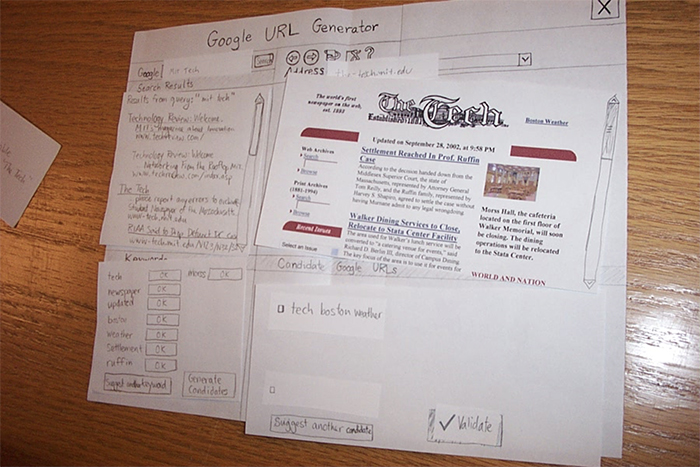 Google URL Generator
X
Google
MIT Tech
Search
Address
Search Results
Results from query: "mit tech"
Technology Review: Welcome.
MIT's Magazine about Innovation
www.techreview.com/
Technology Review: Welcome
The Tech
Student Newspaper of the Massachusetts
www-tech.mit.edu
The world's first
newspaper on the web,
est. 1883
The Tech
Boston Weather
Updated on September 28, 2002, at 9:58 PM
Web Archives
Search
Browse
Print Archives
(1881-1994)
Search
Browse
Recent Issues
Select an issue
Settlement Reached In Prof. Ruffin
Case
According to the decision handed down from the
Middlesex Superior Court, the state of
Massachusetts, represented by Attorney General
Tom Reilly, and the Ruffin family, represented by
Harvey S. Shapiro, agreed to settle the case without
having Murnane admit to any legal wrongdoing.
Walker Dining Services to Close,
Relocate to Stata Center Facility
The area used for Walker's lunch service will be
converted to "a catering venue for events," said
Richard D. Berlin III, director of Campus Dining
The key focus of the area is to use it for events for
Morss Hall, the cafeteria
located on the first floor of
Walker Memorial, will soon
be closing. The dining
operations will be relocated
to the Stata Center.
WORLD AND NATION
Keywords
tech OK
morss OK
newspaper OK
updated OK
boston OK
weather OK
settlement OK
ruffin OK
Suggest another keyword
Generate
Candidates
Candidate Google URLs
tech boston weather
Suggest another candidate
✓ Validate
"The Tech"